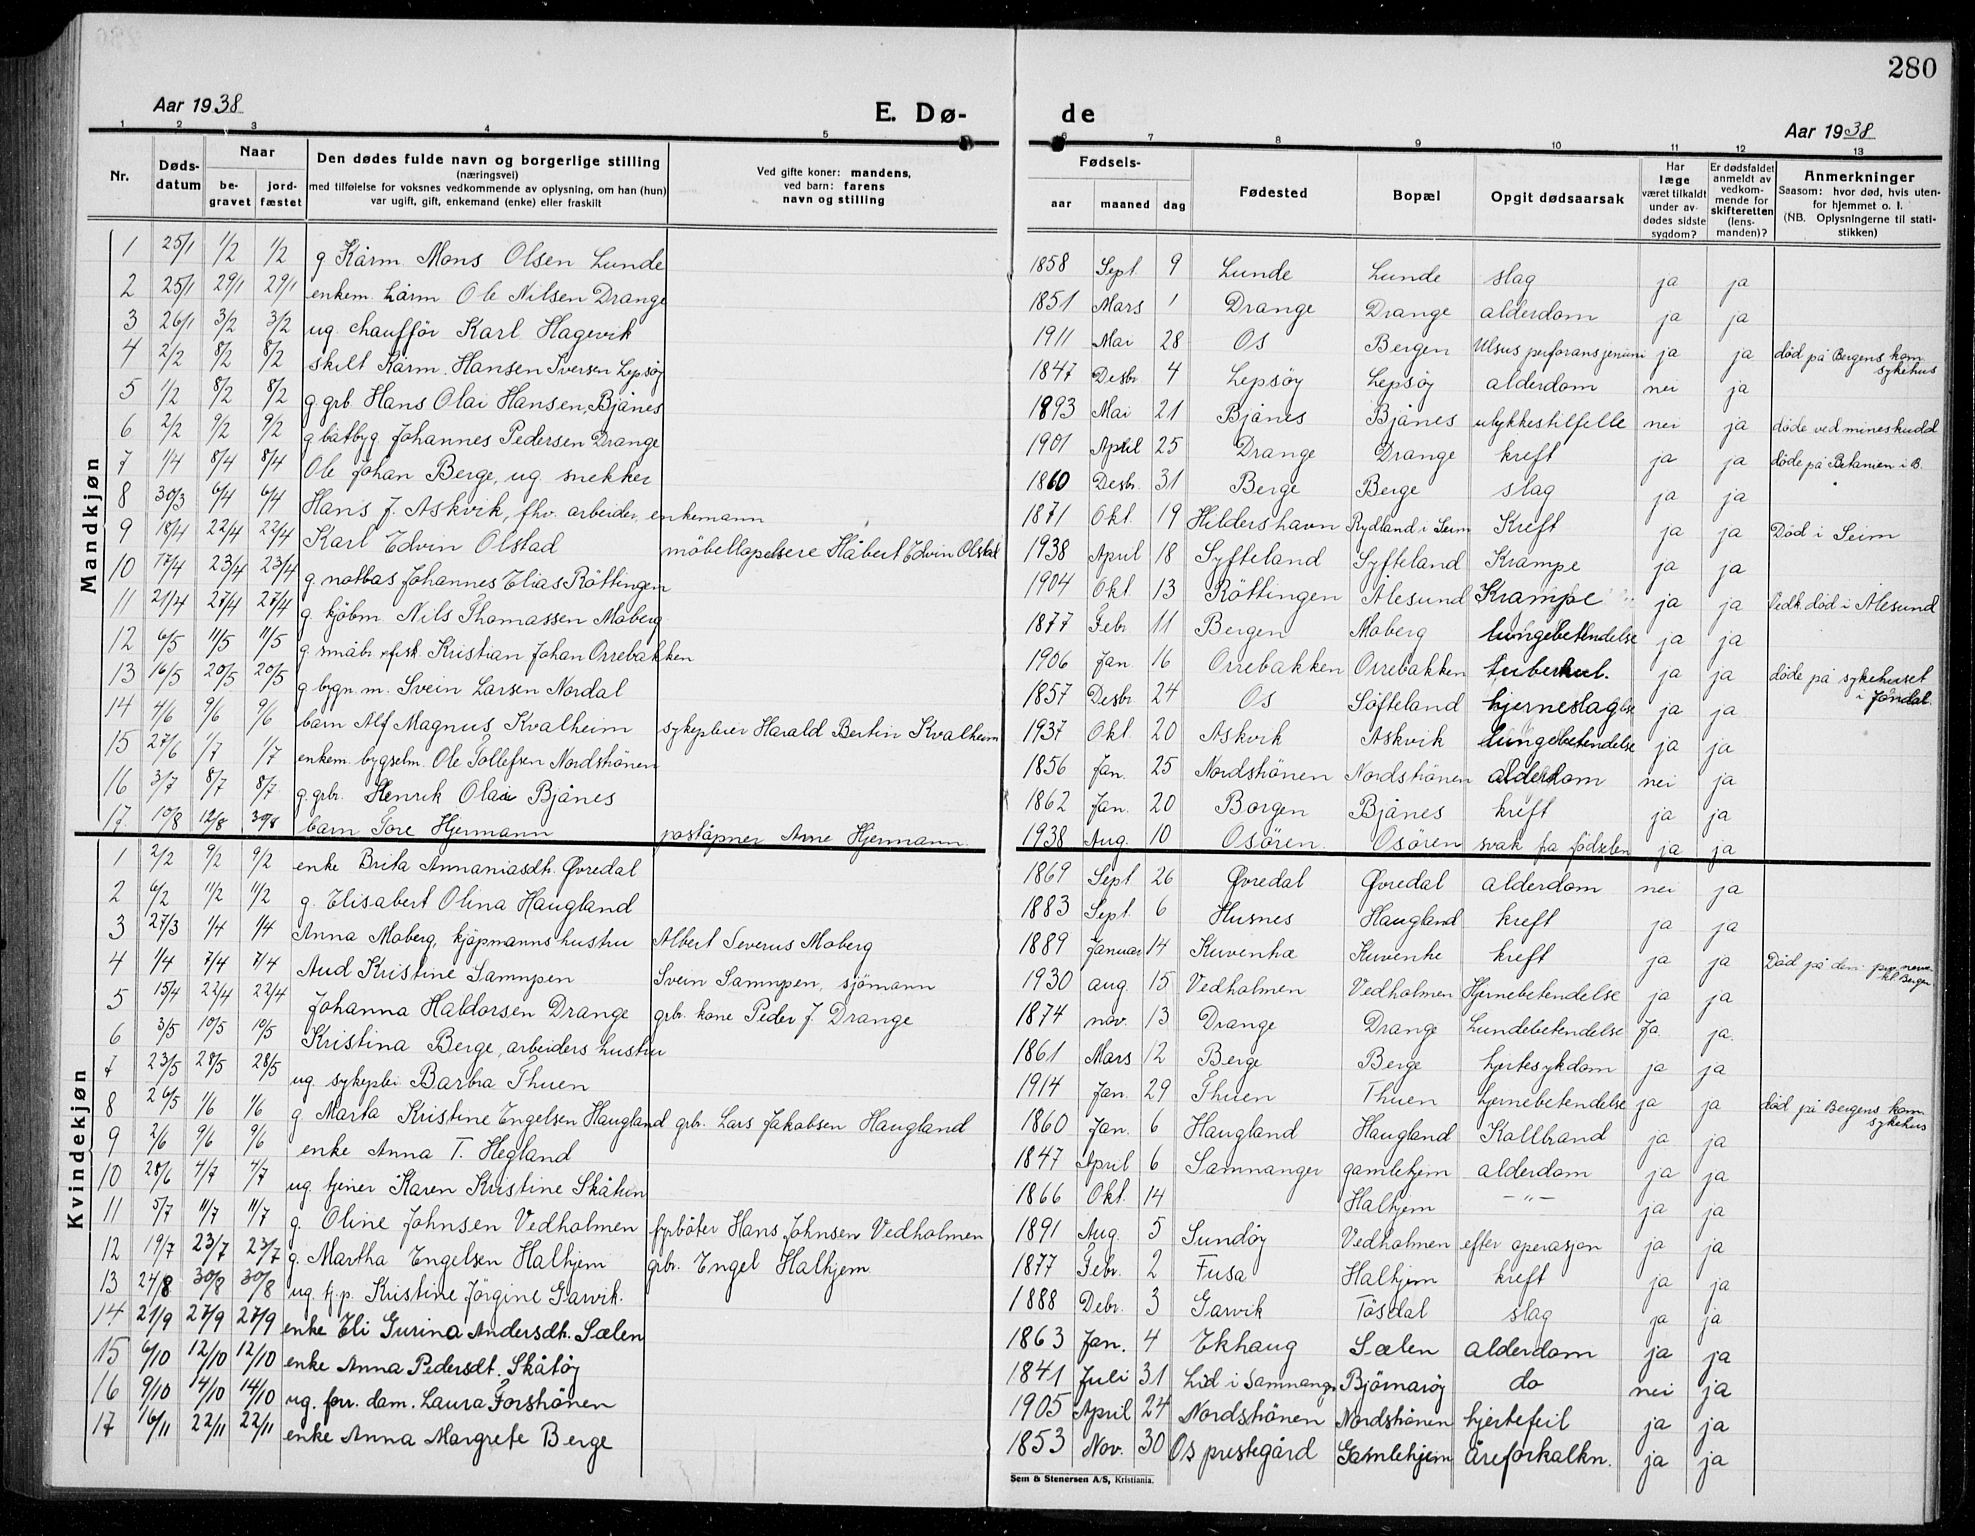 280
Aar 1938
E. Dø-
de
Aar 1938
1 2 3 4 5
6 7 8 9 10 11 12 13
Nr.
Døds-
datum
Naar
be-
gravet
jord-
fæstet
Den dødes fulde navn og borgerlige stilling
(næringsvei)
med tilføielse for voksnes vedkommende av oplysning, om han (hun)
var ugift, gift, enkemand (enke) eller fraskilt
Ved gifte koner: mandens,
ved barn: farens
navn og stilling
Fødsels-
aar maaned dag
Fødested
Bopæl
Opgit dødsaarsak
Har
læge
været tilkaldt
under av-
dødes sidste
sygdom?
Er dødsfaldet
anmeldt av
vedkom-
mende for
skifteretten
(lens-
manden)?
Anmerkninger
Saasom: hvor død, hvis uten-
for hjemmet o. l.
(NB. Oplysningerne til stati-
stikken)
Mandkjøn
1 25/1 1/2 1/2 g Kårm. Mons Olsen Lunde 1858 Sept. 9 Lunde Lunde slag ja ja
2 25/1 29/1 29/1 enkem. kårm Ole Nilsen Drange 1851 Mars 1 Drange Drange alderdom ja ja
3 26/1 3/2 3/2 ug. chaufför Karl Hagevik 1911 Mai 28 Os Bergen Ulsus perforans jenuni ja ja død på Bergens kom. sykehus
4 2/2 8/2 8/2 skilt Kårm. Hansen Iversen Lepsöy 1847 Desbr 4 Lepsöy Lepsöy alderdom nei ja
5 1/2 8/2 8/2 g grb. Hans Olai Hansen, Bjånes 1893 Mai 21 Bjånes Bjånes ulykkestilfelle nei ja døde ved mineskudd
6 2/2 9/2 9/2 g båtbyg. Johannes Pedersen Drange 1901 April 25 Drange Drange kreft ja ja døde på Betanien i B.
7 1/4 8/4 8/4 Ole Johan Berge, ug. snekker 1860 Desbr. 31 Berge Berge slag ja ja
8 30/3 6/4 6/4 Hans J. Askvik, fhv. arbeider, enkemann 1871 Okt. 19 Hildershavn Rydland i Seim Kreft ja ja Død i Seim
9 18/4 22/4 22/4 Karl Edvin Olstad möbeltapetsere Håbert Edvin Olstad 1938 April 18 Syfteland Syfteland Krampe ja ja
10 17/4 23/4 23/4 g. notbas Johannes Elias Röttingen 1904 Okt 13 Röttingen Ålesund Krampe ja ja Vedk. død i Ålesund
11 21/4 27/4 27/4 g. kjöbm. Nils Thomassen Moberg 1877 Febr 11 Bergen Moberg lungebetendelse ja ja
12 6/5 11/5 11/5 g småbr. fisk. Kristian Johan Orrebakken 1906 Jan. 16 Orrebakken Orrebakken tuberkul. ja ja døde på sykehuset i Jondal.
13 16/5 20/5 20/5 g. bygn. m. Svein Larsen Nordal 1857 Desbr 24 Os Söfteland hjerneslag ja ja
14 4/6 9/6 9/6 barn Alf Magnus Kvalheim sykepleier Harald Bertin Kvalheim 1937 Okt. 20 Askvik Askvik lungebetendelse ja ja
15 27/6 1/7 1/7 enkem. bygselm. Ole Tollefsen Nordstrønen 1856 Jan. 25 Nordströnen Nordströnen alderdom nei ja
16 3/7 8/7 8/7 g. grbr. Henrik Olai Bjånes 1862 Jan. 20 Borgen Bjånes kreft ja ja
17. 10/8 12/8 30/8 barn Tore Hjermann poståpner Arne Hjermann. 1938 Aug. 10 Osören. Osören svak fra födselen ja ja
Kvindekjøn
1 2/2 9/2 9/2 enke Brita Annaniasdt. Øvredal 1869 Sept 26 Øvredal Øvredal alderdom nei ja
2 6/2 11/2 11/2 g. Elisabert Olina Haugland 1883 Sept. 6 Husnes Haugland kreft ja ja
3 27/3 1/4 1/4 Anna Moberg, kjöpmanns hustru Albert Severus Moberg 1889 Januar 14 Kuvenhæ Kuvenhe kreft ja ja Død på den nerve kl. Bergen
4 1/4 7/4 7/4 Aud Kristine Samnøen Svein Samnøen, sjömann 1930 aug. 15 Vedholmen Vedholmen Hjernebetendelse ja ja
5 15/4 22/4 22/4 Johanna Haldorsen Drange grb. kone Peder J. Drange 1874 nov. 13 Drange Drange Lundebetendelse Ja. ja.
6 3/5 10/5 10/5 Kristina Berge, arbeiders hustru 1861 Mars 12 Berge Berge hjertesykdom ja ja
7 23/5 28/5 28/5 ug. sykeplei Barbra Thuen 1914 Jan. 29 Thuen Thuen hjernebetendelse ja ja død på Bergens kom. sykehus
8 26/5 1/6 1/6 g Marta Kristine Engelsen Haugland grb. Lars Jakobsen Haugland 1860 Jan. 6 Haugland Haugland Kallbrand ja ja
9 2/6 9/6 9/6 enke Anna T. Hegland 1847 April 6 Samnanger gamlehjem alderdom ja ja
10 28/6 4/7 4/7 ug. tjener Karen Kristine Skåtun 1866 Okt. 14 Halhjem —"— ja ja
11 5/7 11/7 11/7 g. Oline Johnsen Vedholmen fyrböter Hans Johnsen Vedholmen 1891 Aug. 5 Sundöy Vedholmen efter operasjon ja ja
12 19/7 23/7 23/7 g. Martha Engelsen Halhjem grbr. Engel Halhjem 1877 Febr. 2 Fusa Halhjem kreft ja ja
13 24/8 30/8 30/8 ug. tj. p. Kristine Jörgine Garvik. 1888 Debr. 3 Garvik Tösdal slag ja ja
14 21/9 27/9 27/9 enke Eli Gurina Andersdt. Sælen 1863 Jan. 4 Ekhaug Sælen alderdom ja ja
15 6/10 12/10 12/10 enke Anna Pedersdt. Skåtöy 1841 Juli 31 Lid i Samnanger Björnaröy do nei ja
16 9/10 14/10 14/10 ug. frr. dam. Laura Forstrønen 1905 April 24 Nordströnen Nordströnen hjertefeil ja ja
17 16/11 22/11 22/11 enke Anna Margrete Berge 1853 Nov. 30 Os prestegård Gamlehjem Åreforkalkn. ja ja
Sem & Stenersen A/S, Kristiania.